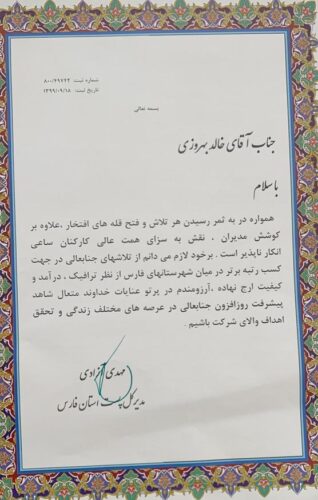 شماره ثبت: ۸۰۰/۴۹۷۴۴
تاریخ ثبت: ۱۳۹۹/۰۹/۱۸
بسمه تعالی
جناب آقای خالد بهروزی
با سلام
همواره در به ثمر رسیدن هر تلاش و فتح قله های افتخار ،علاوه بر
کوشش مدیران ، نقش به سزای همت عالی کارکنان ساعی
انکار ناپذیر است . برخود لازم می دانم از تلاشهای جنابعالی در جهت
کسب رتبه برتر در میان شهرستانهای فارس از نظر ترافیک ، درآمد و
کیفیت ارج نهاده ،آرزومندم در پرتو عنایات خداوند متعال شاهد
پیشرفت روزافزون جنابعالی در عرصه های مختلف زندگی و تحقق
اهداف والای شرکت باشیم .
مهدی آزادی
مدیر کل پست استان فارس